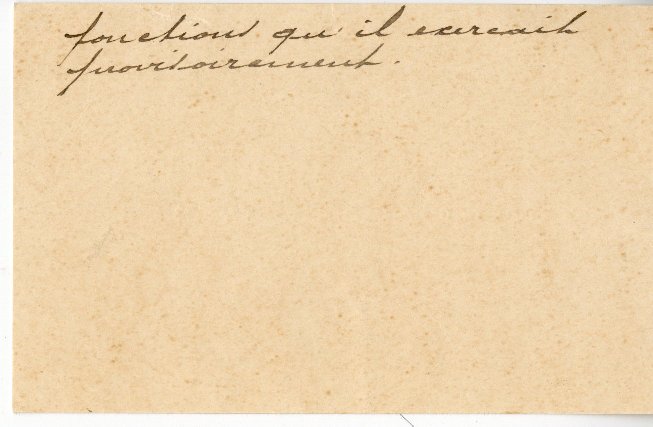 fonctions qu'il exercait
provisoirement.